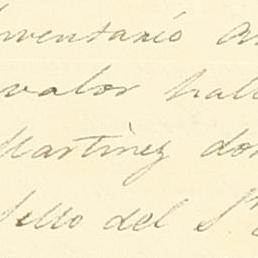 Inventario
valor hall
Martínez don
Sello del S